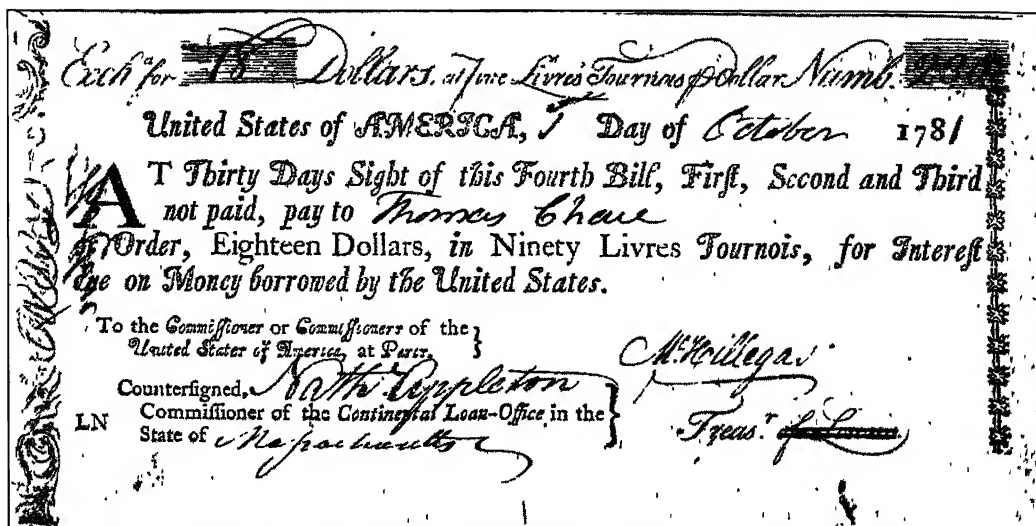 Exchᵃ for 18 Dollars. at five Livres Tournois ⅌ Dollar Numb.
United States of AMERICA, Day of October 1781
AT Thirty Days Sight of this Fourth Bill, Firſt, Second and Third
not paid, pay to Thomas
Order, Eighteen Dollars, in Ninety Livres Tournois, for Intereſt
due on Money borrowed by the United States.
To the Commiſſioner or Commiſſioners of the
United States of America, at Paris.
M. Hillegas
Counterſigned, Nathˡ Appleton
LN Commiſſioner of the Continental Loan-Office in the
State of Massachusetts
Treasʳ